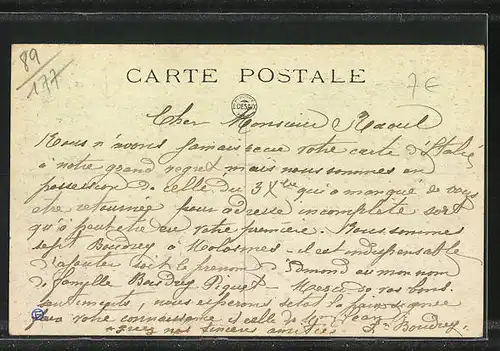 89
177
7€
CARTE POSTALE
Cher Monsieur Raoul
Nous n'avons jamais reçue votre carte d'Italie
à notre grand regret mais nous sommes en
possession de celle du 3 Xbre qui a manqué de vous
etre retournée pour adresse incomplete sort
qu'a peut etre eu votre première. Nous sommes
sept Boudrey à Molosmes - il est indispensable
d'ajouter soit le prenom d'Edmond ou mon nom
de famille Boudrey Piquet - Merci de vos bons
nous esperons
votre connaissance et celle de
nos sincères amitiés. Boudrey